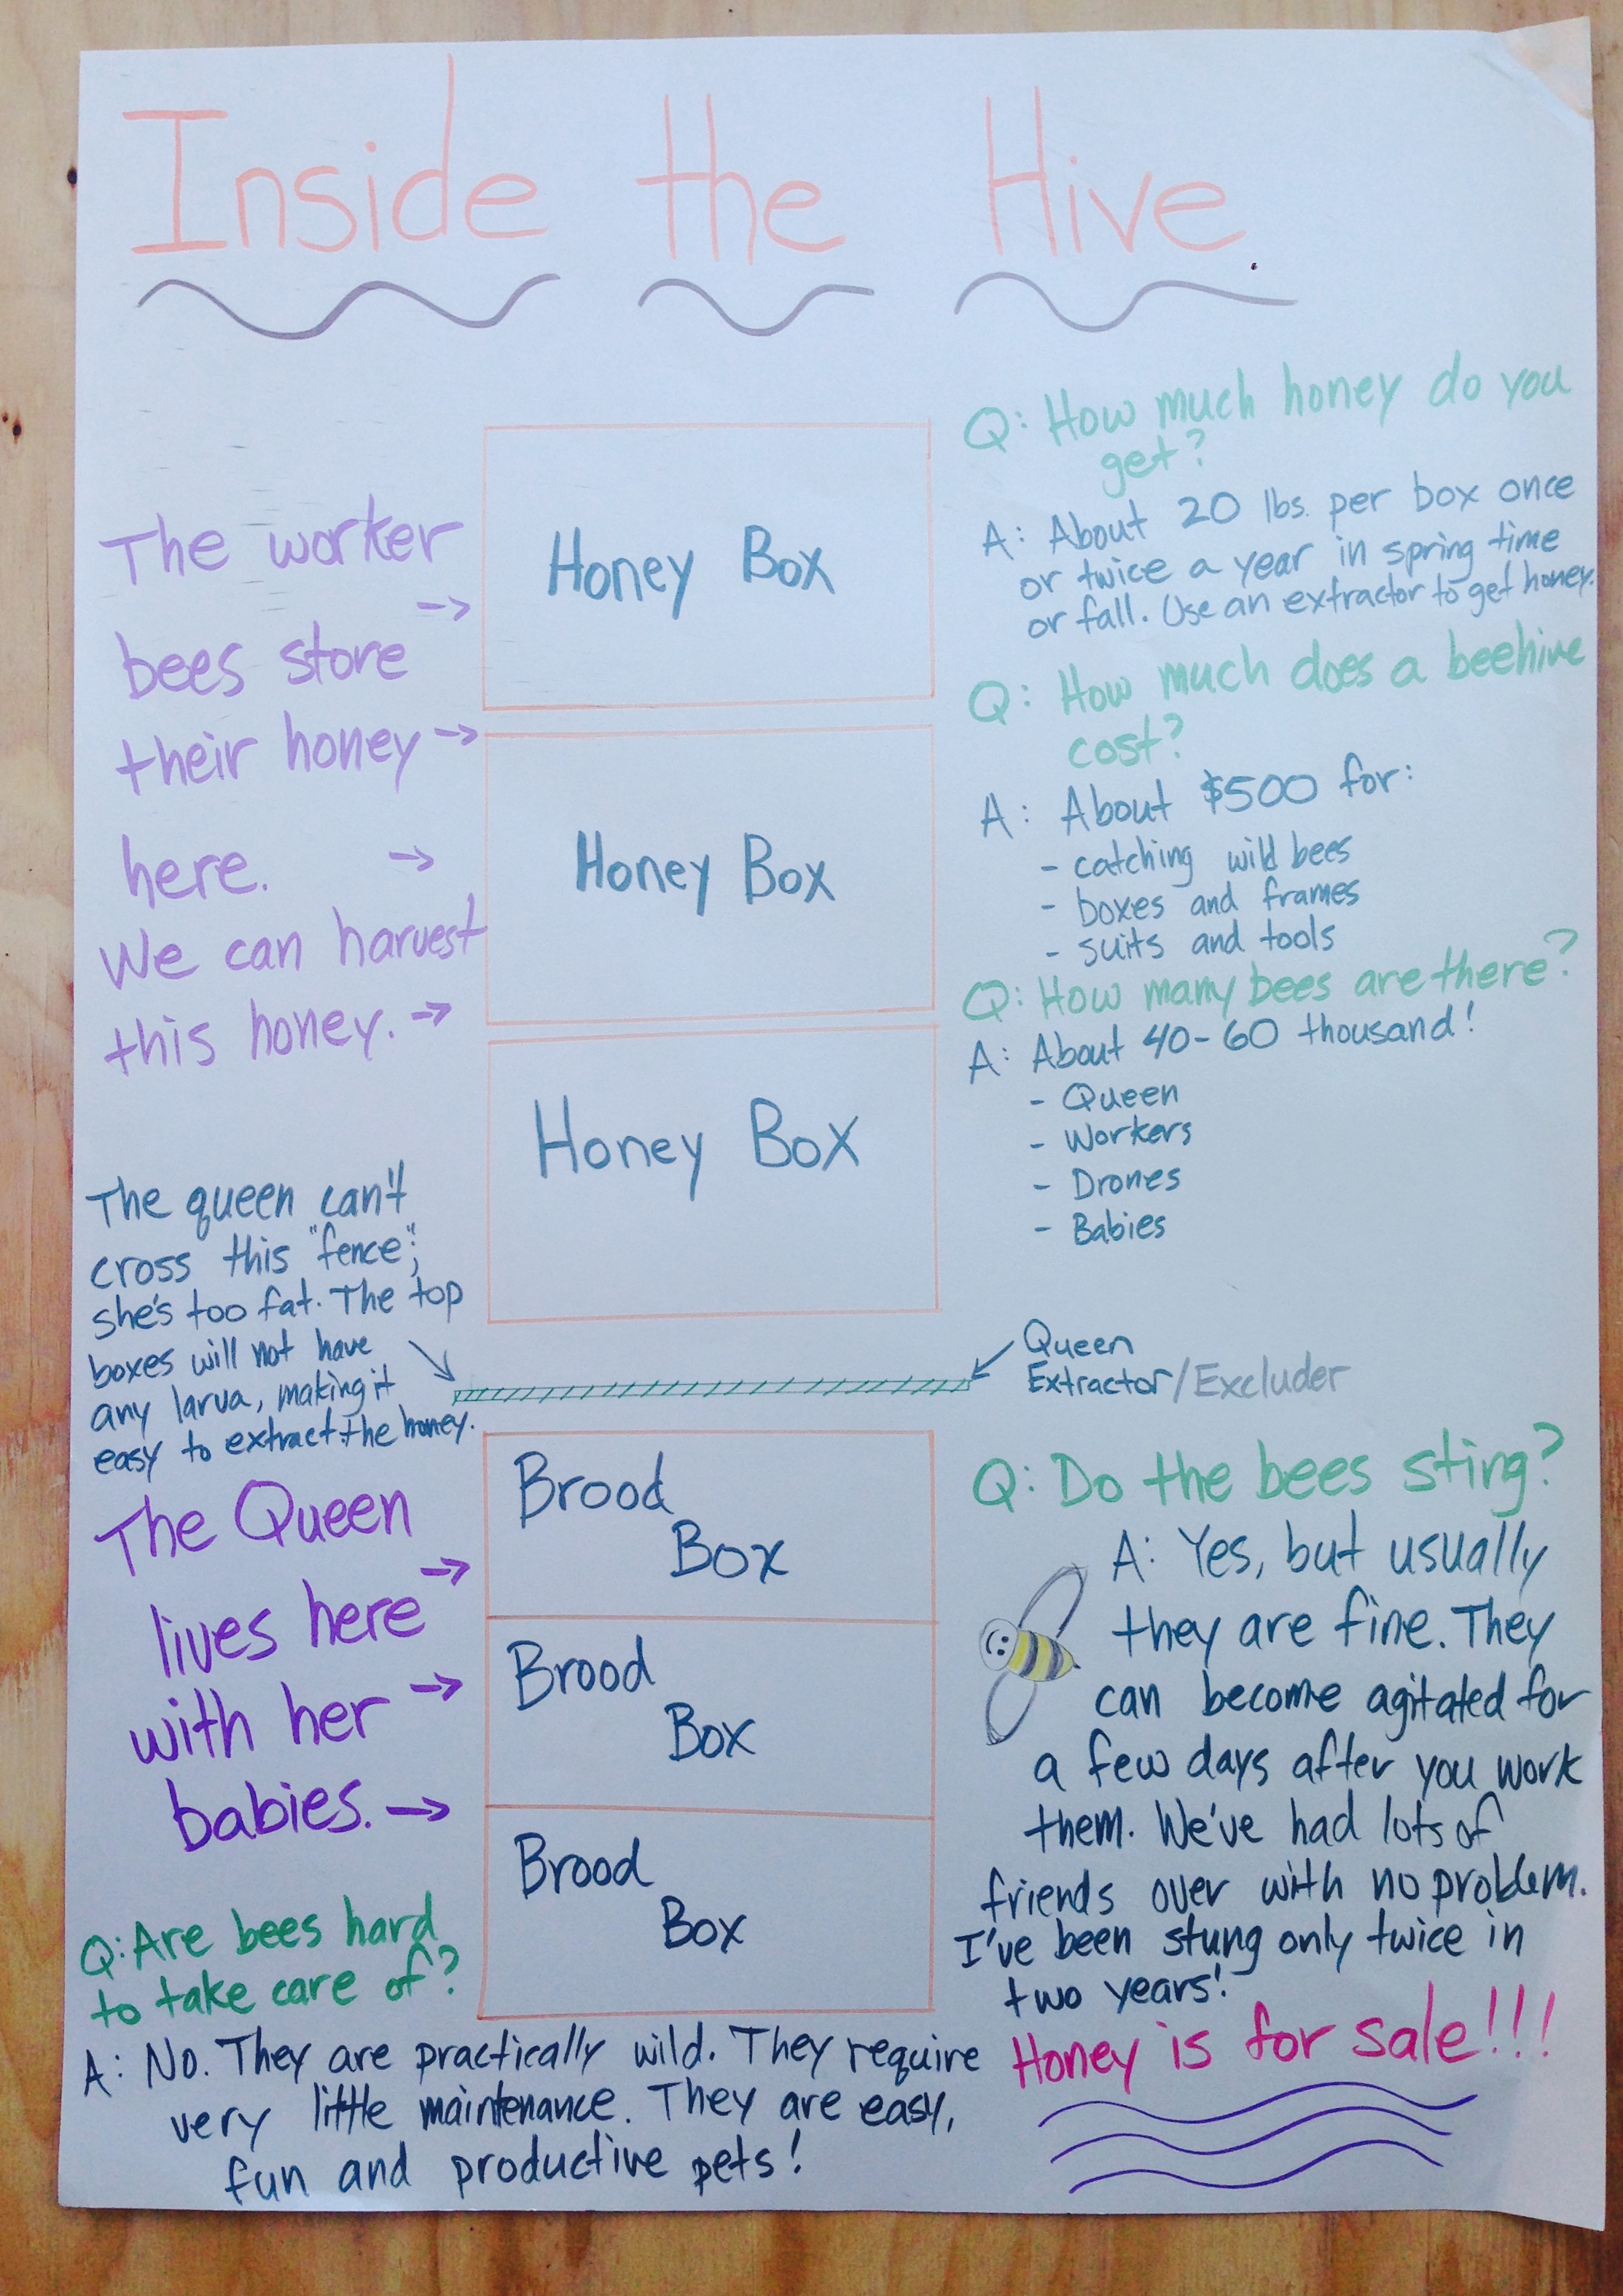 Inside the Hive.
The worker
bees store
their honey →
here. →
We can harvest
this honey. →
Honey Box
Honey Box
Honey Box
Q: How much honey do you
get?
A: About 20 lbs. per box once
or twice a year in spring time
or fall. Use an extractor to get honey.
Q: How much does a beehive
cost?
A: About $500 for:
- catching wild bees
- boxes and frames
- suits and tools
Q: How many bees are there?
A: About 40-60 thousand!
- Queen
- Workers
- Drones
- Babies
The queen can't
cross this "fence";
she's too fat. The top
boxes will not have
any larva, making it
easy to extract the honey.
Queen
Extractor/Excluder
The Queen
lives here →
with her →
babies. →
Brood
Box
Brood
Box
Brood
Box
Q: Do the bees sting?
A: Yes, but usually
they are fine. They
can become agitated for
a few days after you work
them. We've had lots of
friends over with no problem.
I've been stung only twice in
two years!
Q: Are bees hard
to take care of?
A: No. They are practically wild. They require
very little maintenance. They are easy,
fun and productive pets!
Honey is for sale!!!